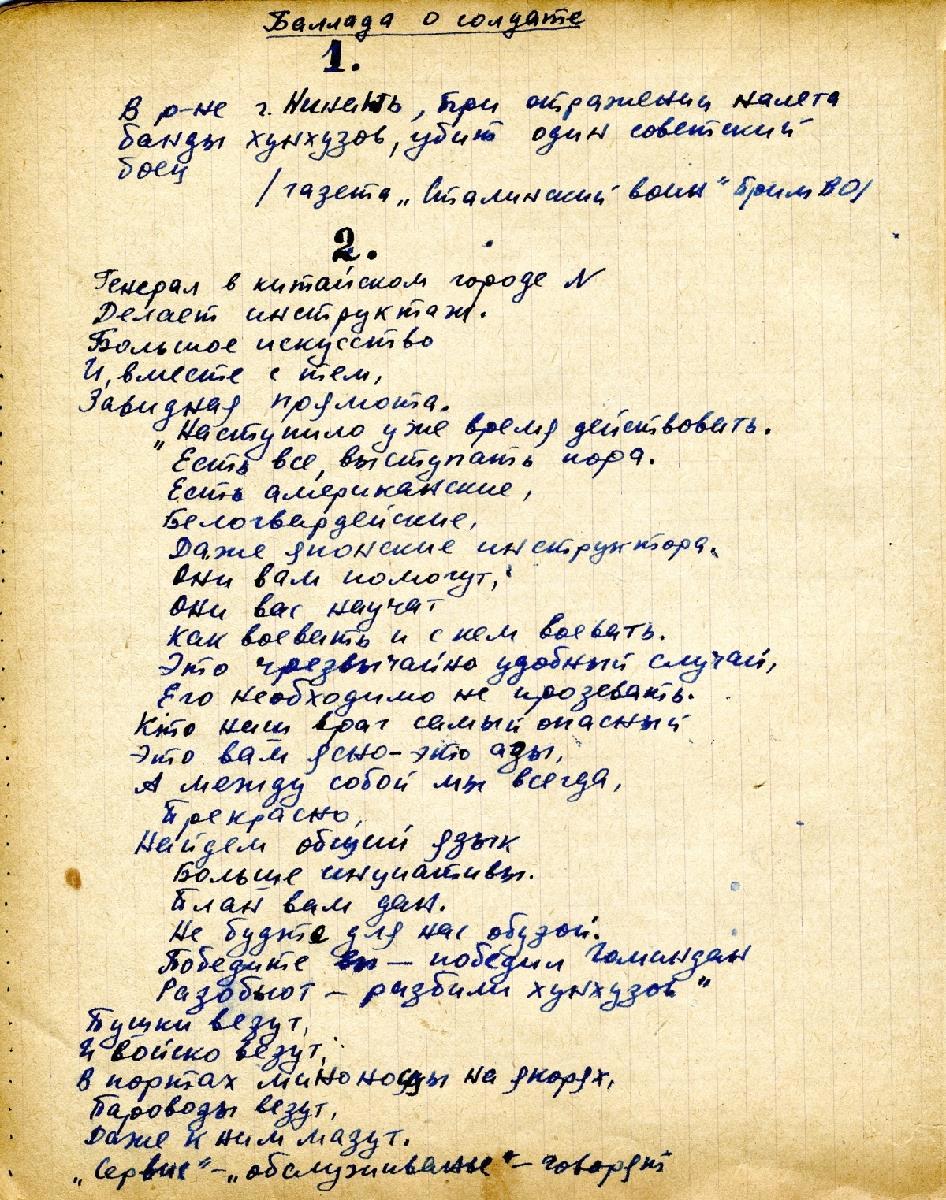 Баллада о солдате
1.
В р-не г. Нинань, при отражении налета
банды хунхузов, убит один советский
боец
/газета „Сталинский воин" ПримВО/
2.
Генерал в китайском городе N
Делает инструктаж.
Большое искусство
И, вместе с тем,
Завидная прямота.
„Наступило уже время действовать.
Есть все, выступать пора.
Есть американские,
Белогвардейские,
Даже японские инструктора.
Они вам помогут,
Они вас научат
Как воевать и с кем воевать.
Это чрезвычайно удобный случай,
Его необходимо не прозевать.
Кто наш враг самый опасный
Это вам ясно-это
А между собой мы всегда,
Прекрасно,
Найдем общий язык
Больше инциативы.
План вам дан.
Не будте для нас обузой.
Победите вы – победил Гоминдан
Разобьют – разбили хунхузов"
Пушки везут,
И войско везут,
В портах миноносцы на якорях,
Пароводы везут,
Даже к ним мазут.
„Сервис"-„обслуживанье"- говорят